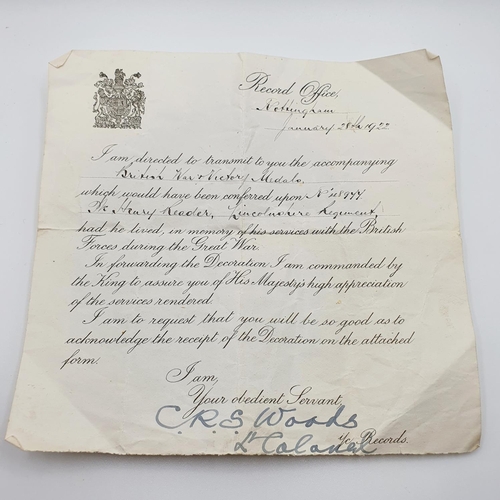 Record Office,
Nottingham
January 28th 1922
I am directed to transmit to you the accompanying
British War & Victory Medals
which would have been conferred upon No
Pte Henry Reader, Lincolnshire Regiment,
had he lived, in memory of his services with the British
Forces during the Great War.
In forwarding the Decoration I am commanded by
the King to assure you of His Majesty's high appreciation
of the services rendered.
I am to request that you will be so good as to
acknowledge the receipt of the Decoration on the attached
form.
I am,
Your obedient Servant,
C.R.S Woods
Lt Colonel
i/c Records.